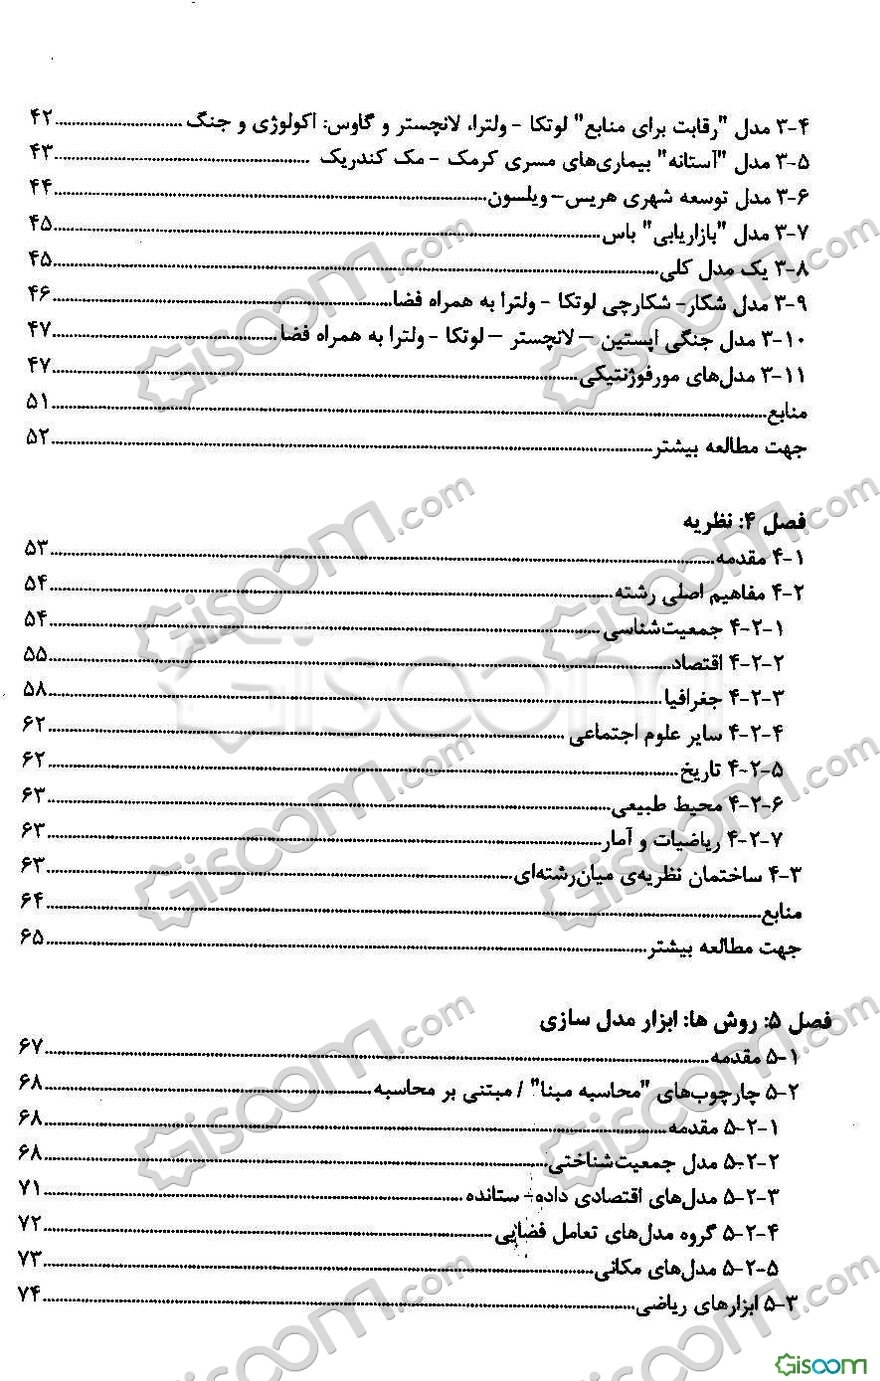 ۳-۴ مدل "رقابت برای منابع" لوتکا - ولترا، لانچستر و گاوس: اکولوژی و جنگ ........ ۴۲
۳-۵ مدل "آستانه" بیماری‌های مسری کرمک - مک کندریک ........ ۴۳
۳-۶ مدل توسعه شهری هریس– ویلسون ........ ۴۴
۳-۷ مدل "بازاریابی" باس ........ ۴۵
۳-۸ یک مدل کلی ........ ۴۵
۳-۹ مدل شکار- شکارچی لوتکا - ولترا به همراه فضا ........ ۴۶
۳-۱۰ مدل جنگی اپستین – لانچستر – لوتکا - ولترا به همراه فضا ........ ۴۷
۳-۱۱ مدل‌های مورفوژنتیکی ........ ۴۷
منابع ........ ۵۱
جهت مطالعه بیشتر ........ ۵۲
فصل ۴: نظریه
۴-۱ مقدمه ........ ۵۳
۴-۲ مفاهیم اصلی رشته ........ ۵۴
۴-۲-۱ جمعیت‌شناسی ........ ۵۴
۴-۲-۲ اقتصاد ........ ۵۵
۴-۲-۳ جغرافیا ........ ۵۸
۴-۲-۴ سایر علوم اجتماعی ........ ۶۲
۴-۲-۵ تاریخ ........ ۶۲
۴-۲-۶ محیط طبیعی ........ ۶۳
۴-۲-۷ ریاضیات و آمار ........ ۶۳
۴-۳ ساختمان نظریه‌ی میان‌رشته‌ای ........ ۶۳
منابع ........ ۶۴
جهت مطالعه بیشتر ........ ۶۵
فصل ۵: روش ها: ابزار مدل سازی
۵-۱ مقدمه ........ ۶۷
۵-۲ چارچوب‌های "محاسبه مبنا" / مبتنی بر محاسبه ........ ۶۸
۵-۲-۱ مقدمه ........ ۶۸
۵-۲-۲ مدل جمعیت‌شناختی ........ ۶۸
۵-۲-۳ مدل‌های اقتصادی داده- ستانده ........ ۷۱
۵-۲-۴ گروه مدل‌های تعامل فضایی ........ ۷۲
۵-۲-۵ مدل‌های مکانی ........ ۷۳
۵-۳ ابزارهای ریاضی ........ ۷۴
Gisoom
Gisoom.com